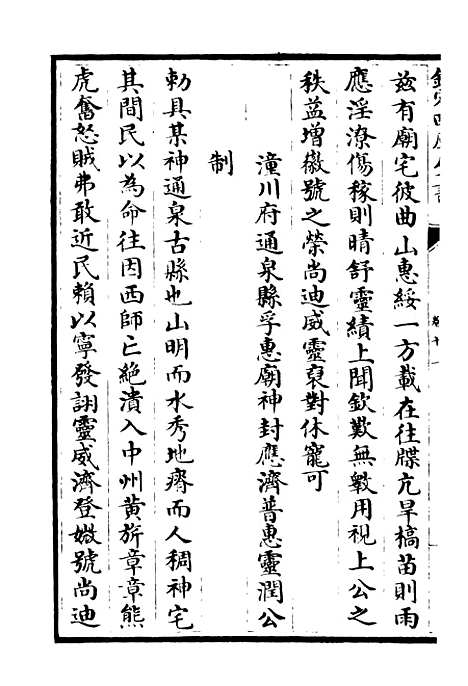 欽定四庫全書
卷十一
兹有廟宅彼曲山惠綏一方載在往牒亢旱槁苗則雨
應淫潦傷稼則晴舒靈績上聞欽歎無斁用視上公之
秩益增徽號之榮尚迪威靈裒對休寵可
潼川府通泉縣孚惠廟神封應濟普惠靈潤公
制
勅具某神通泉古縣也山明而水秀地瘠而人稠神宅
其間民以為命往因西師亡絶潰入中州黄旂章章熊
虎奮怒賊弗敢近民賴以寧發詡靈威濟登媺號尚迪